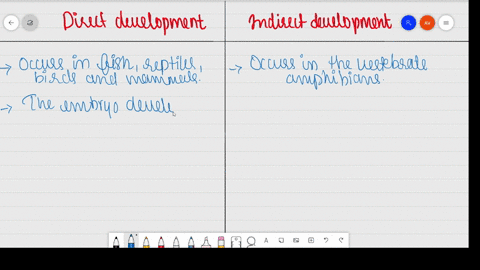 Direct development
Indirect development
→ Occurs in fish, reptiles,
birds and mammals.
→ The embryo devel
→ Occurs in the vertebrate
amphibians.